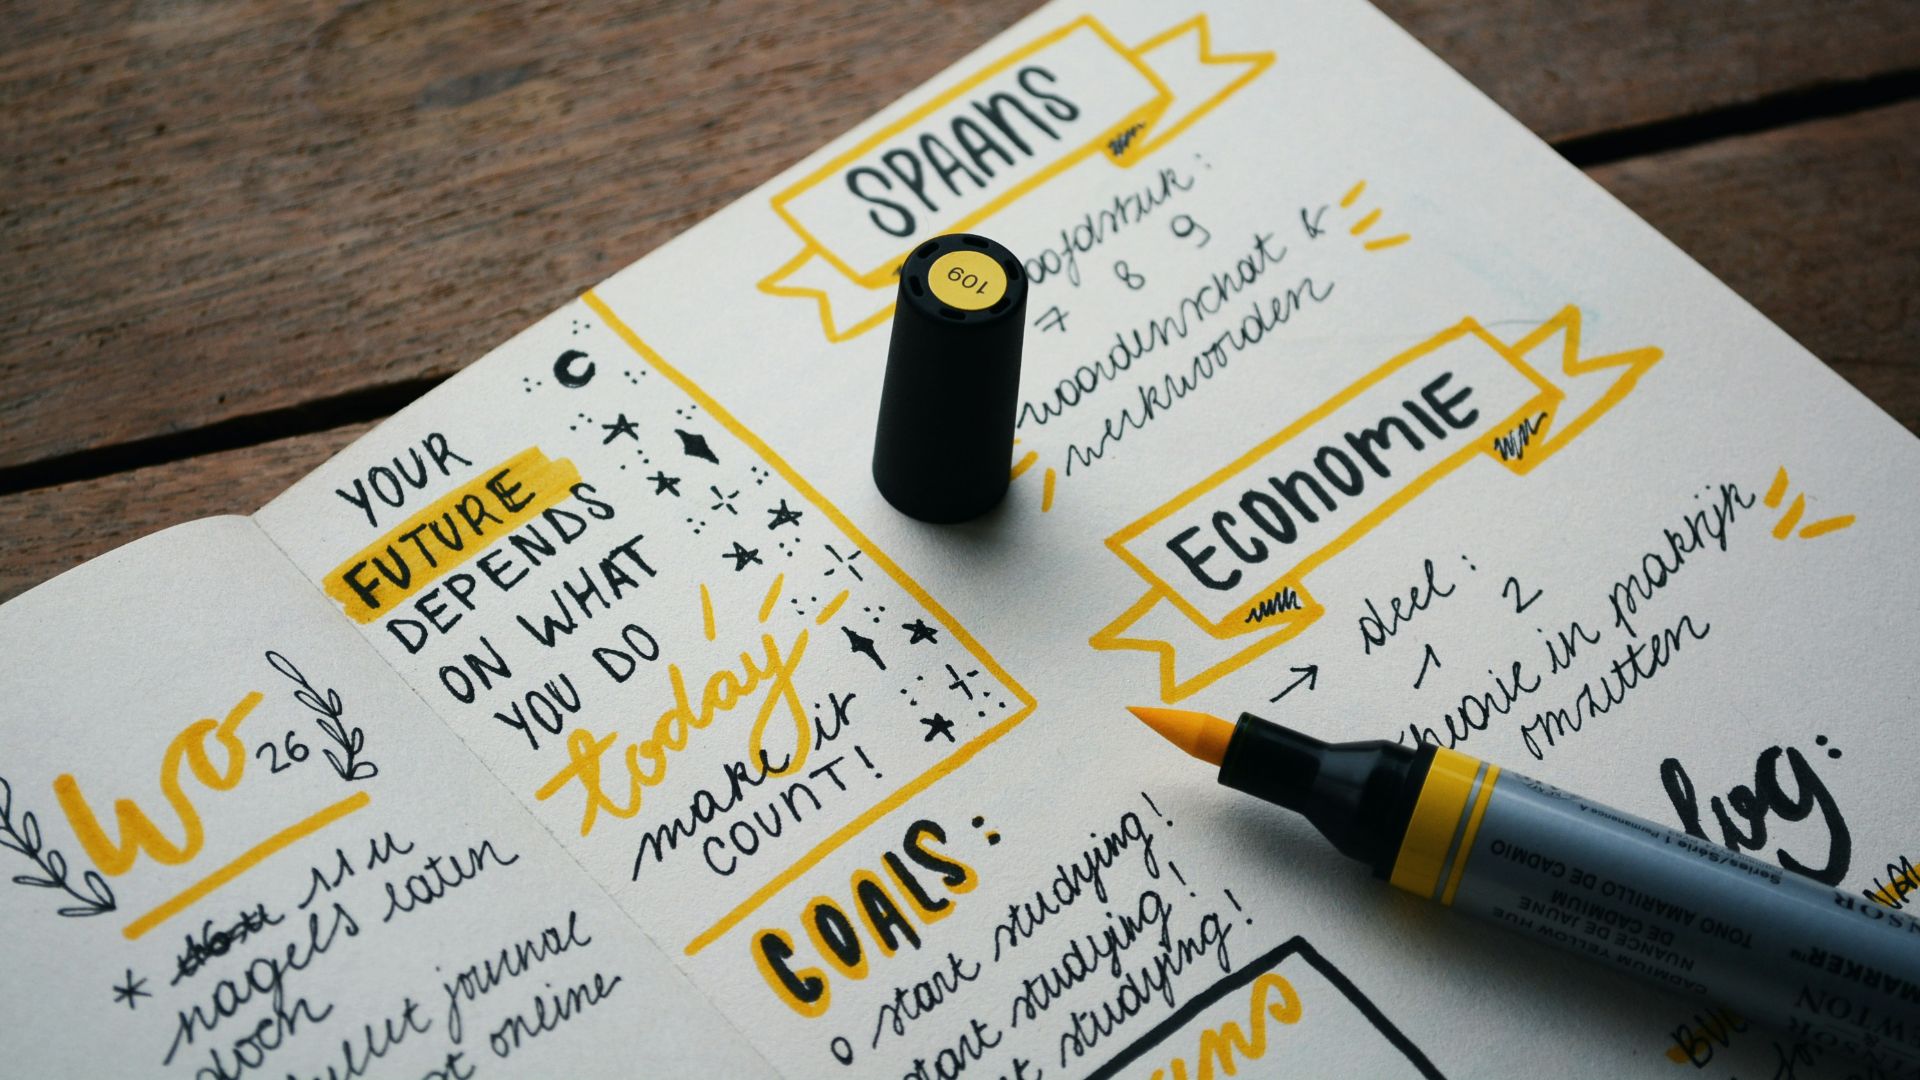 wo
26
* 11 u
nagels laten
doen
bullet journal
online
YOUR
FUTURE
DEPENDS
ON WHAT
YOU DO
today
make it
COUNT!
GOALS:
o start studying!
start studying!
studying!
SPAANS
hoofdstuk:
7 8 9
woordenschat &
werkwoorden
ECONOMIE
→ deel:
1 2
theorie in praktijk
omzetten
log:
109
Series/Série 1 Permanence A
CADMIUM YELLOW HUE
NUANCE DE JAUNE
DE CADMIUM
TONO AMARILLO DE CADMIO
MARKER™